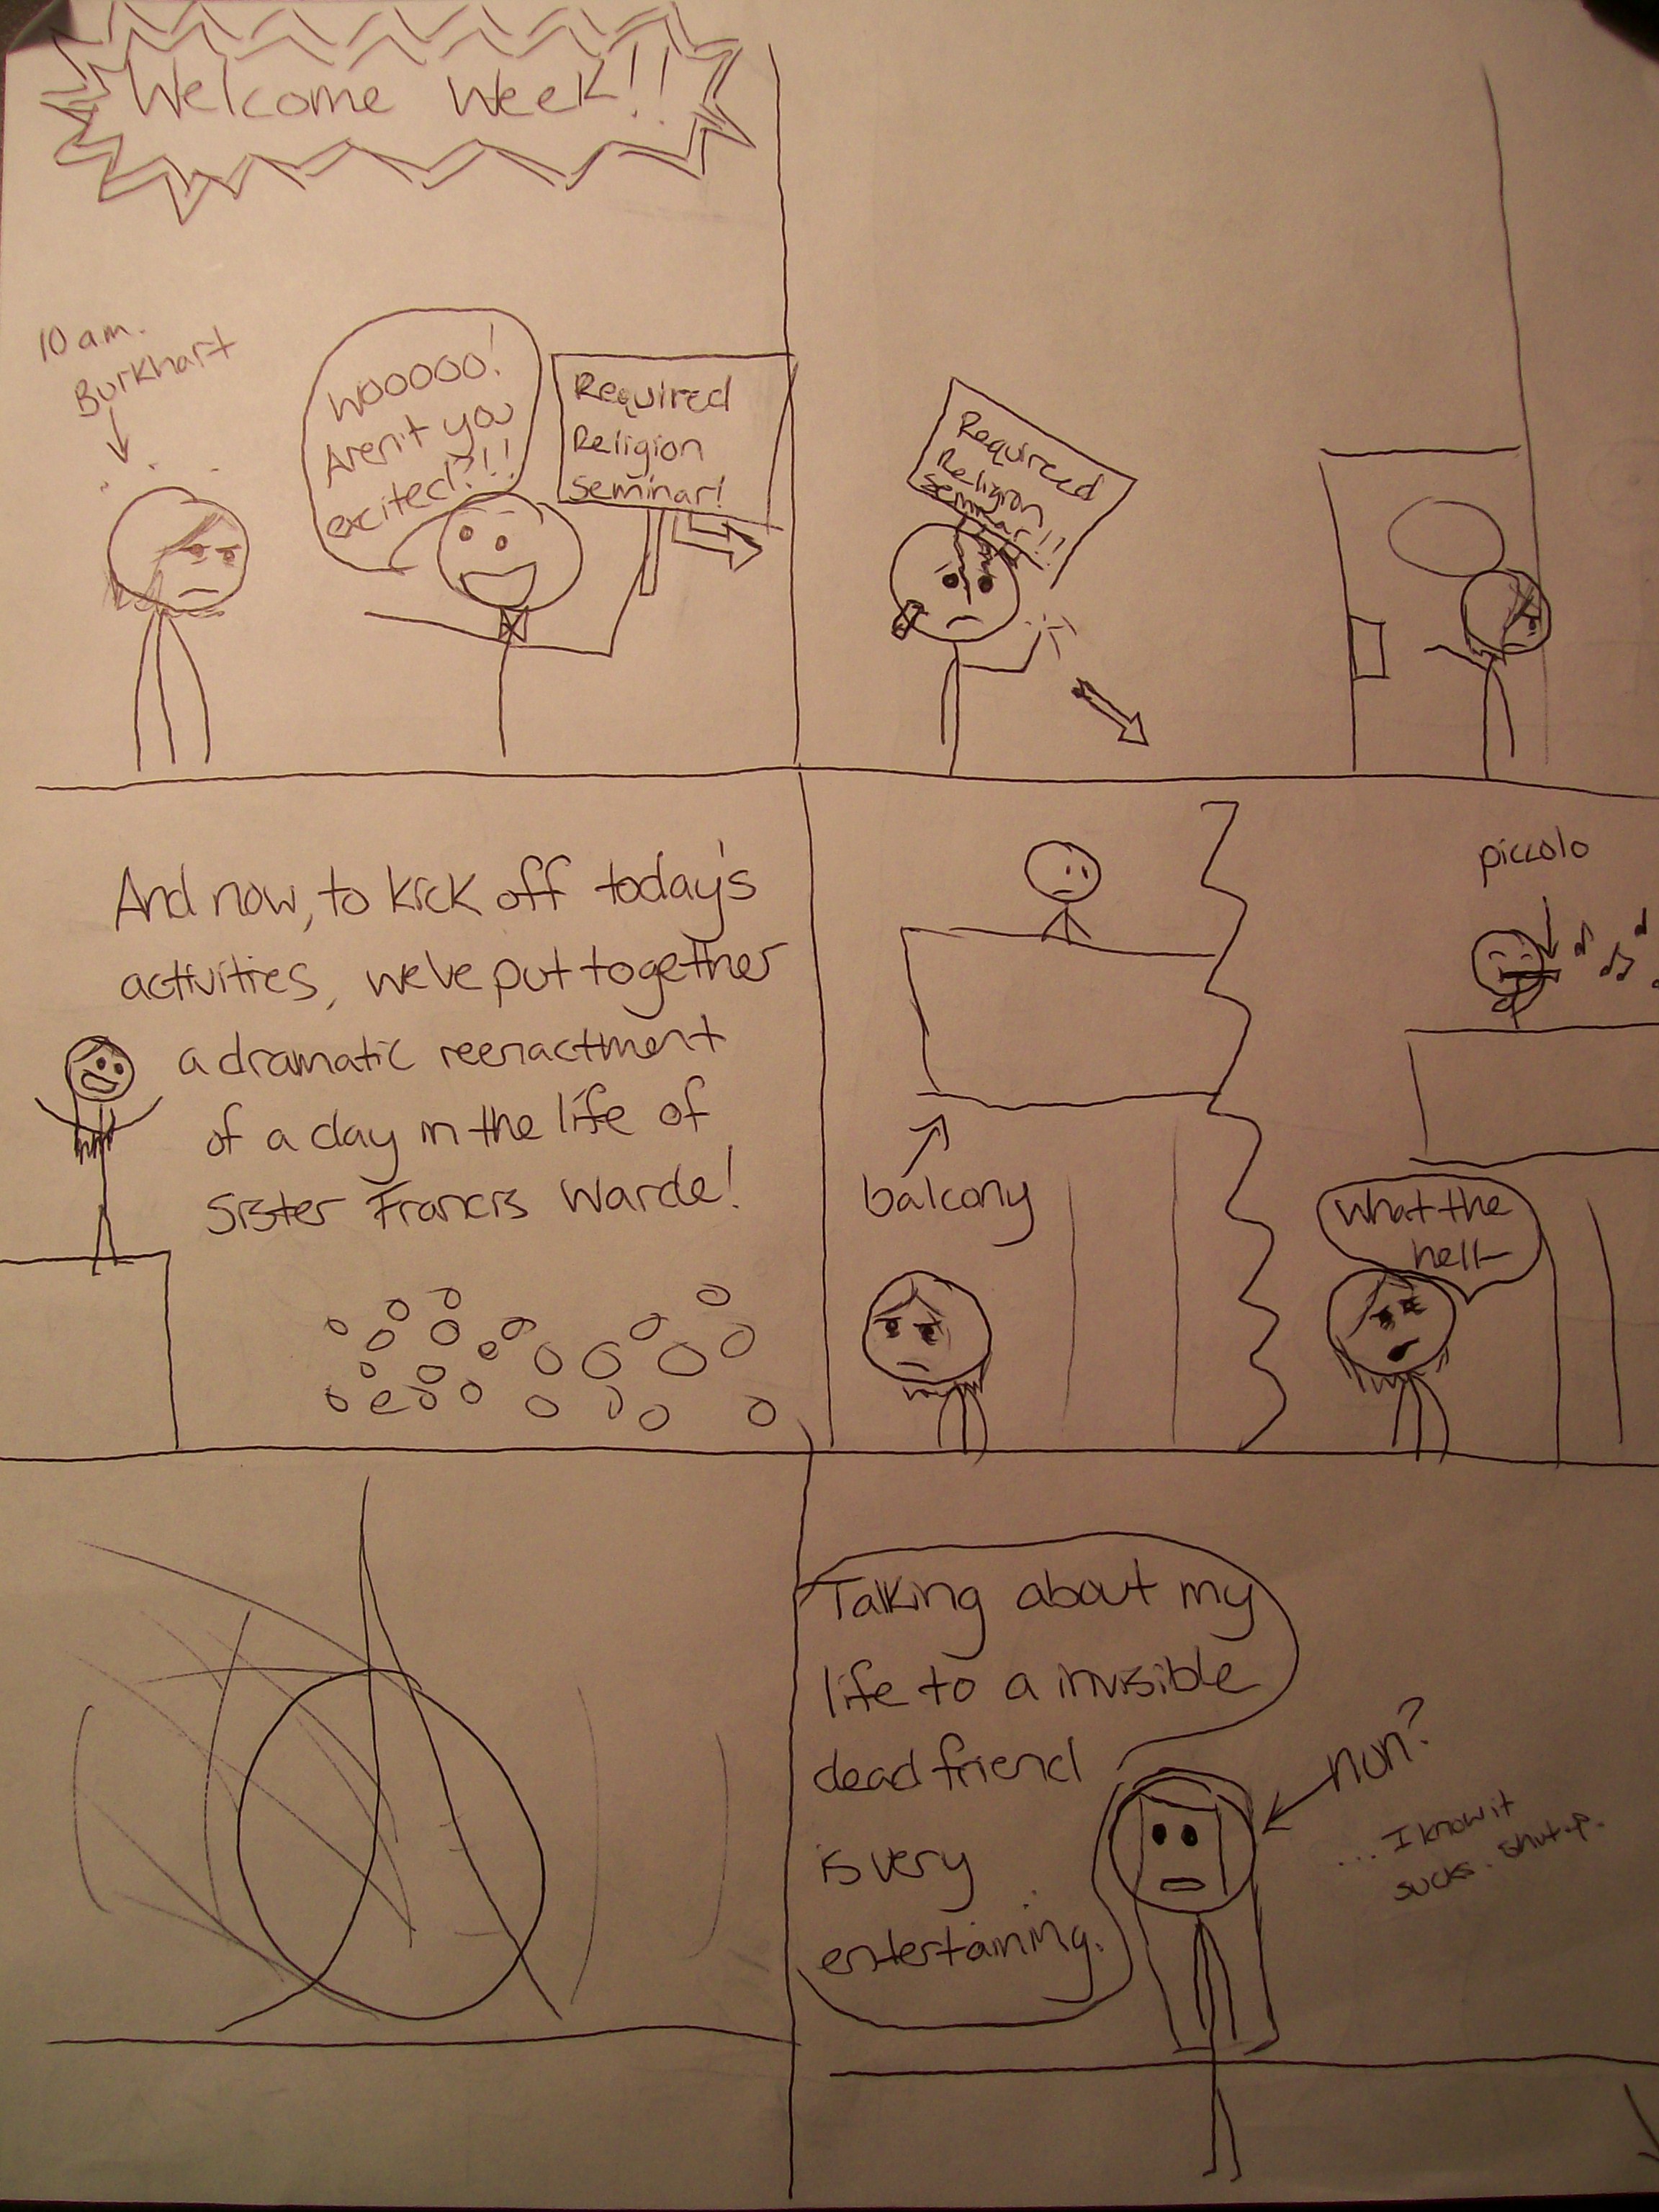 Welcome Week!!
10 am.
Burkhart
WOOOOO!
Aren't you
excited?!!
Required
Religion
Seminar!
Required
Religion
Seminar!!
And now, to kick off today's
activities, we've put together
a dramatic reenactment
of a day in the life of
Sister Francis Warde!
balcony
piccolo
What the
hell-
Talking about my
life to a invisible
dead friend
is very
entertaining.
nun?
... I know it
sucks. shut up.